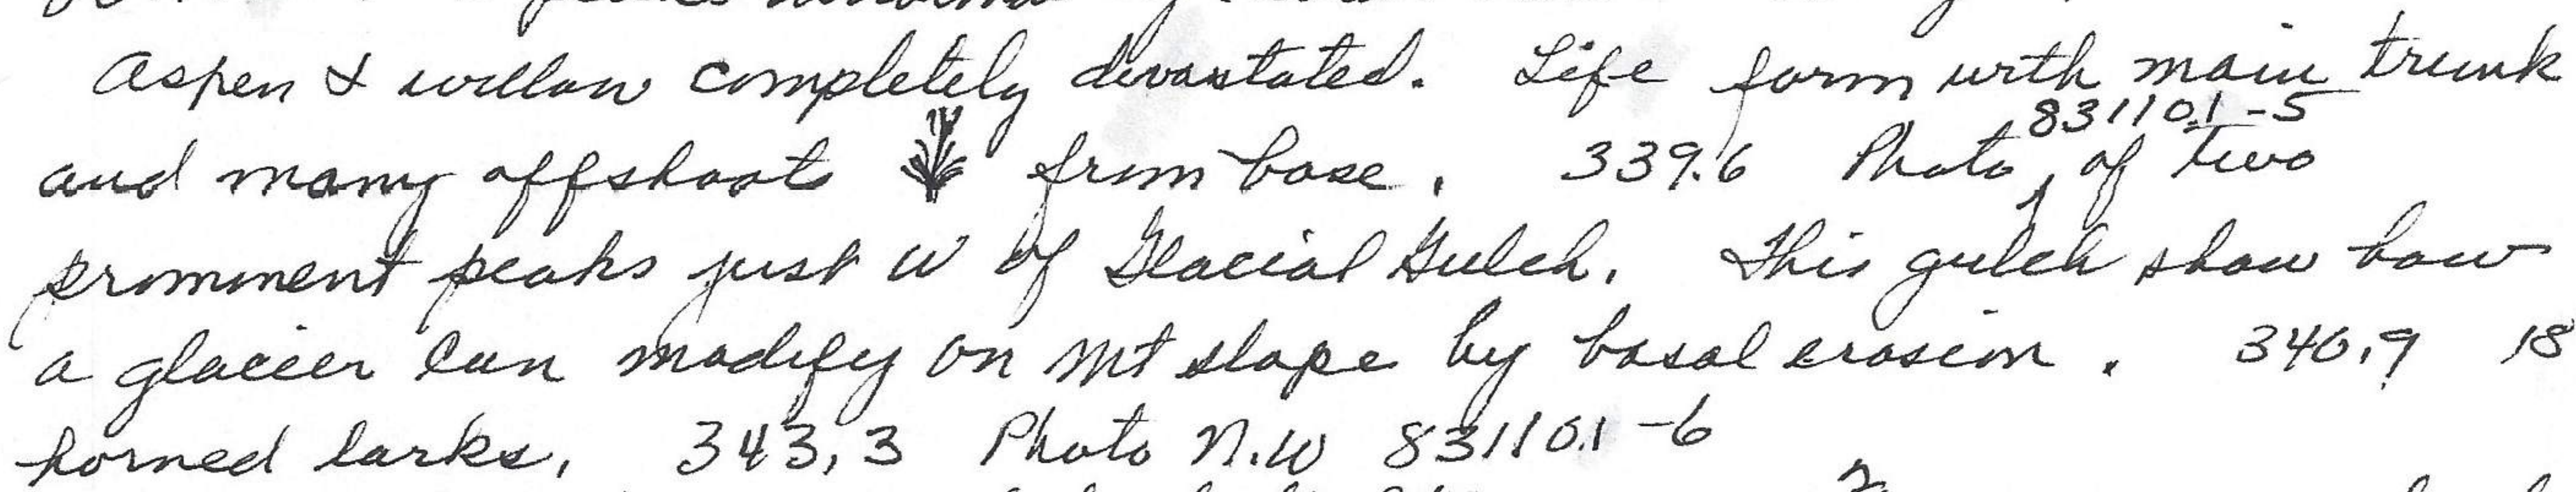 Aspen & willow completely devastated. Life form with main trunk
and many offshoots from base. 339.6 Photo 831101-5 of two
prominent peaks just W of Glacial Gulch. This gulch show how
a glacier can modify on Mt slope by basal erosion. 340.9 18
horned larks. 343.3 Photo N.W 831101-6